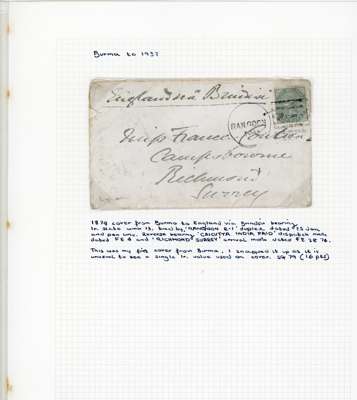 Burma to 1937
England via Brindisi
RANGOON
Miss Frances
Campsbourne
Richmond
Surrey
1874 cover from Burma to England via Brindisi bearing
1a slate tied by 'RANGOON R-1' duplex dated
and pen line. Reverse bearing 'CALCUTTA INDIA PAID' dispatch mark
dated FE 4 and 'RICHMOND SURREY' arrival mark dated FE 28 74.
This was my first cover from Burma, I snapped it up as it is
unusual to see a single value used on cover. SG 79 (16 pts)